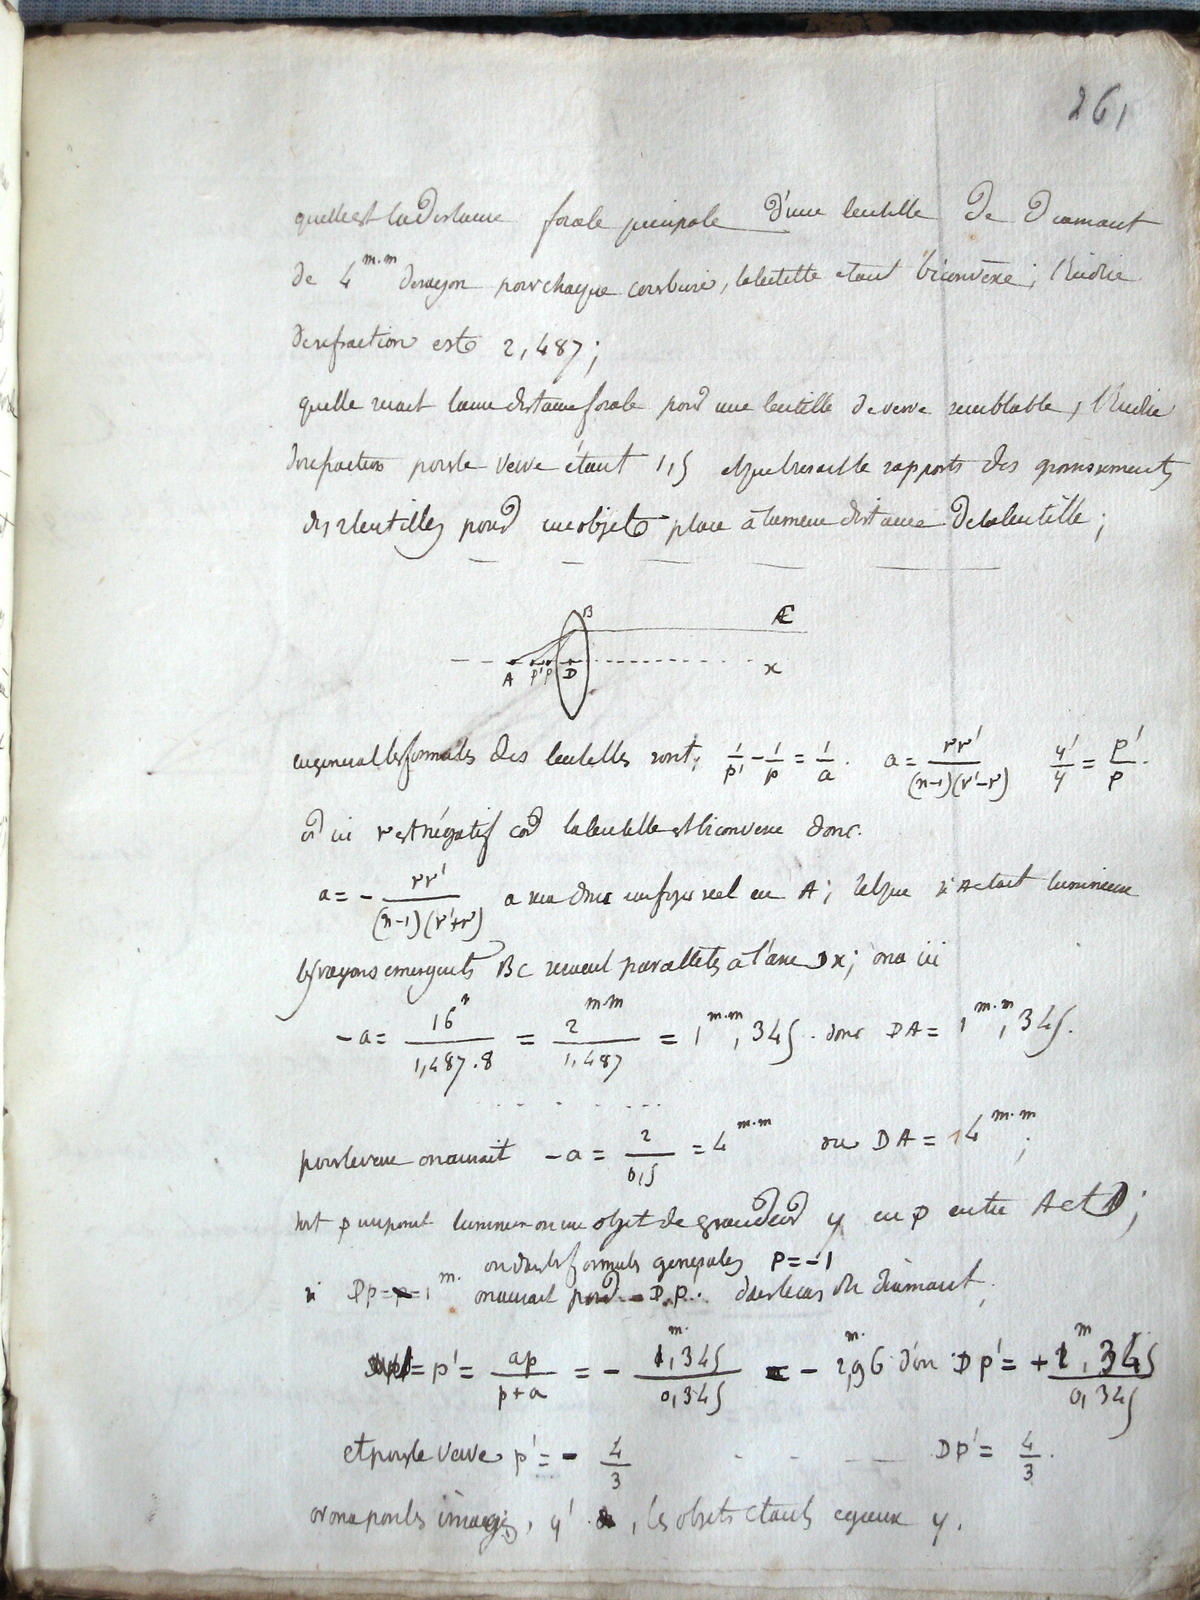 261
quelle est la distance focale principale d'une lentille de Diamant
de 4 m.m de rayon pour chaque courbure, la lentille etant biconvexe; l'indice
de refraction est 2,487;
quelle serait la meme distance focale pour une lentille de verre semblable, l'indice
de refraction pour le verre étant 1,5 et quel serait le rapport des grossissements
des 2 lentilles pour un objet place à la meme distance de la lentille;
B
C
A p' p D x
en general les formules des lentilles sont; 1/p' - 1/p = 1/a. a = rr'/(n-1)(r'-r) y'/y = p'/p.
or ici r est négatif car la lentille est biconvexe donc.
a = - rr'/(n-1)(r'+r) a sera donc un foyer reel en A; tel que si A etait lumineux
les rayons emergents BC seraient paralleles à l'axe Dx; on a ici
-a = 16/1,487.8 = 2 m.m/1,487 = 1 m.m,345. donc DA = 1 m.m,345.
pour le verre on aurait -a = 2/0,5 = 4 m.m ou DA = 4 m.m;
soit p un point lumineux ou un objet de grandeur y en p entre A et D;
ou dans les formules generales p = -1
si Dp = 1 m. on aurait pour Dp. dans le cas du diamant;
= p' = ap/p+a = - 1 m,345/0,345 = - 2 m,96 d'ou Dp' = + 1 m,345/0,345
et pour le verre p' = - 4/3 Dp' = 4/3.
or on a pour les images, y', les objets etant egaux y.